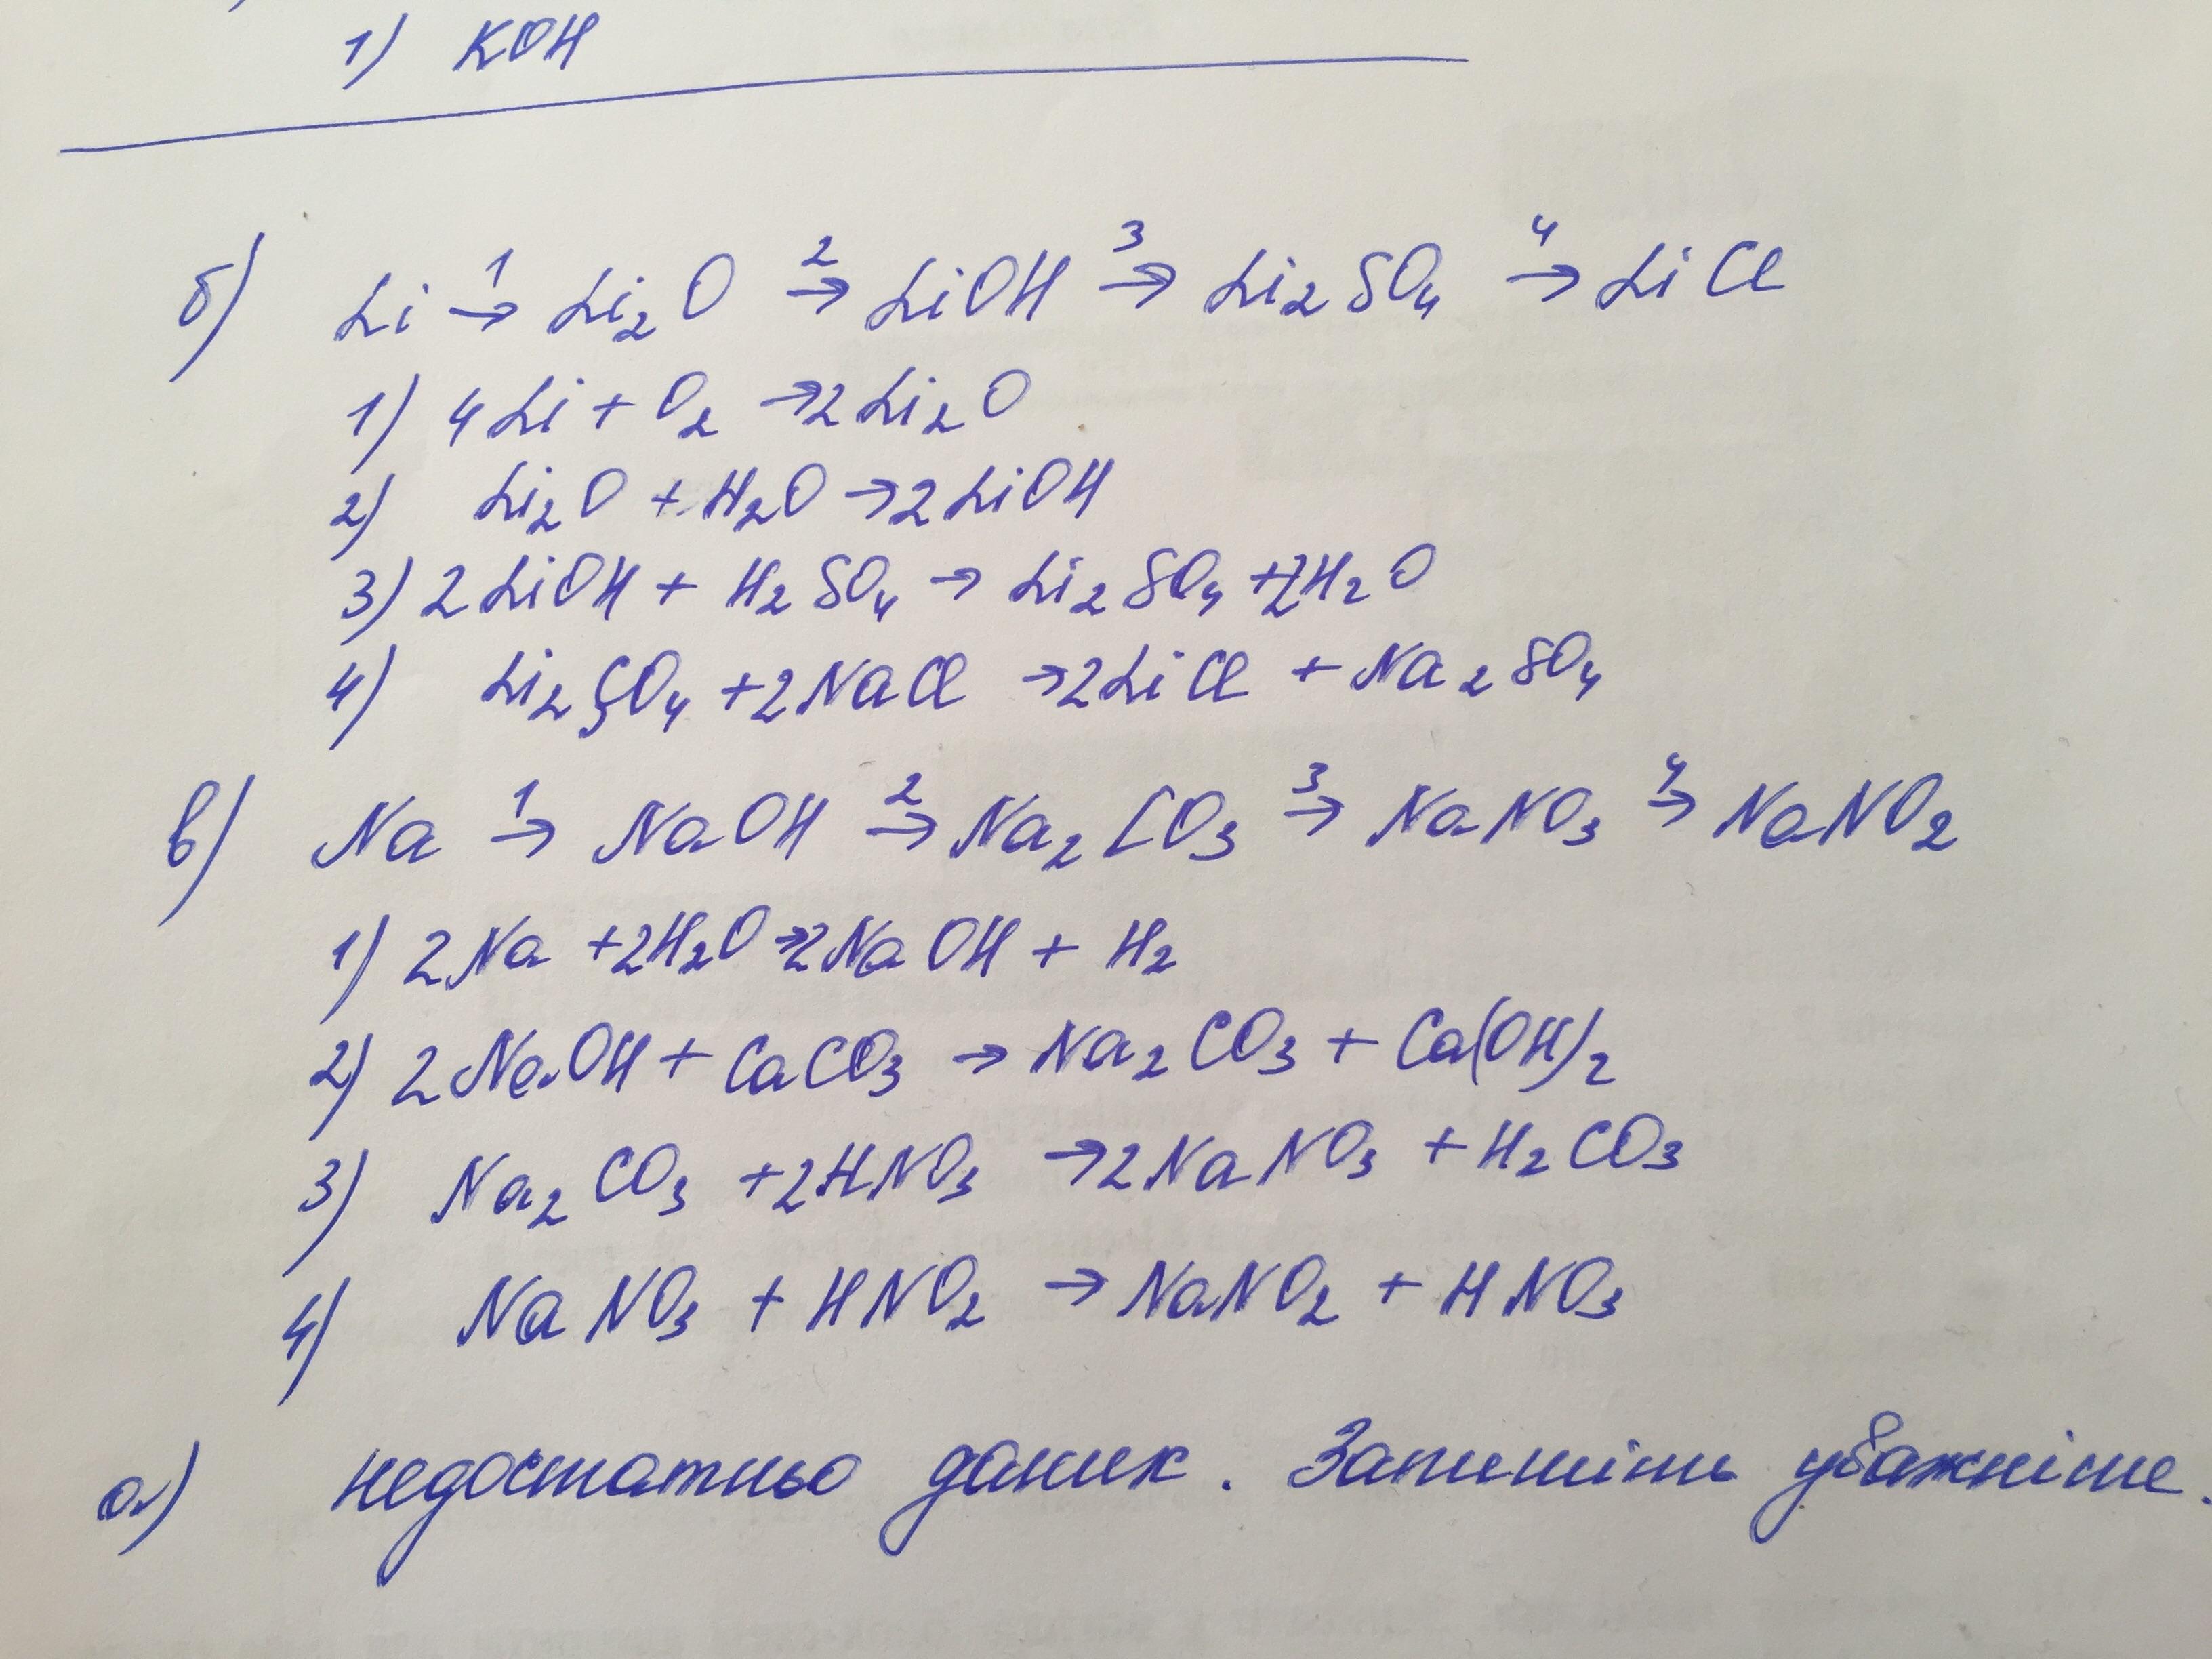 1) KOH
б) Li →¹ Li₂O →² LiOH →³ Li₂SO₄ →⁴ LiCl
1) 4Li + O₂ → 2Li₂O
2) Li₂O + H₂O → 2LiOH
3) 2LiOH + H₂SO₄ → Li₂SO₄ + 2H₂O
4) Li₂SO₄ + 2NaCl → 2LiCl + Na₂SO₄
в) Na →¹ NaOH →² Na₂CO₃ →³ NaNO₃ →⁴ NaNO₂
1) 2Na + 2H₂O → 2NaOH + H₂
2) 2NaOH + CaCO₃ → Na₂CO₃ + Ca(OH)₂
3) Na₂CO₃ + 2HNO₃ → 2NaNO₃ + H₂CO₃
4) NaNO₃ + HNO₂ → NaNO₂ + HNO₃
а) недостатньо даних. Запишіть уважніше.